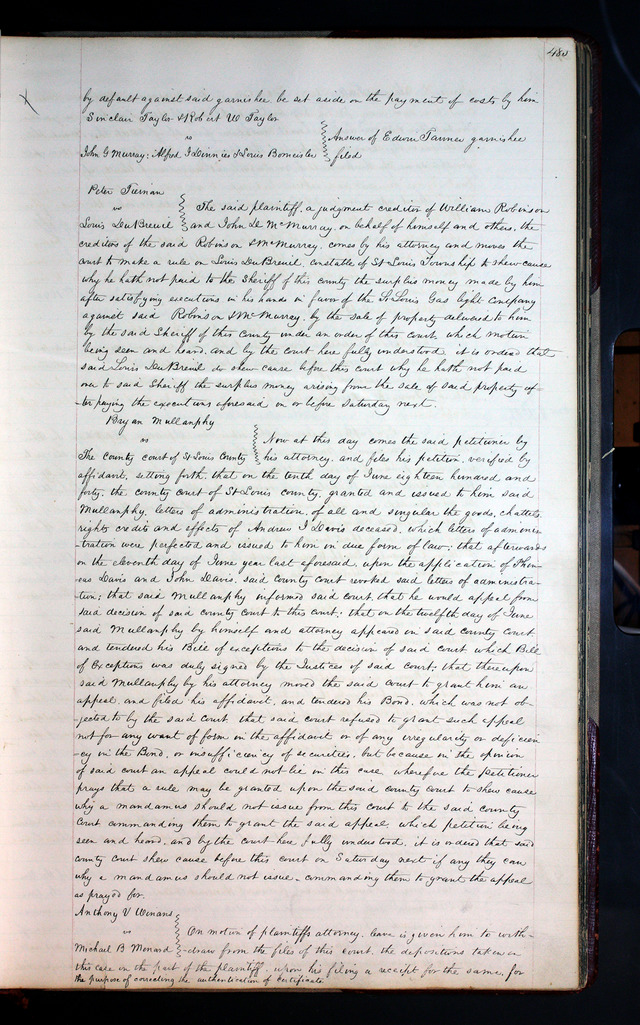 480
by default against said garnishee be set aside on the payment of costs by him
Sinclair Taylor & Robert W Taylor
vs
Answer of Edwin Tanner garnishee
John G Murray; Alfred J & Louis Bomeisler
filed
Peter Tiernan
vs
The said plaintiff, a judgment creditor of William Robinson
Louis DuBreuil
and John McMurray, on behalf of himself and others, the
creditors of the said Robinson & McMurray, comes by his attorney and moves the
court to make a rule on Louis DuBreuil, constable of St Louis Township to shew cause
why he hath not paid to the Sheriff of this county the surplus money made by him
after satisfying executions in his hands in favor of the St Louis Gas light Company
against said Robinson & McMurray, by the sale of property delivered to him
by the said Sheriff of this County under an order of this court, which motion
being seen and heard, and by the court here fully understood, it is ordered that
said Louis DuBreuil do shew cause before this court why he hath not paid
over to said Sheriff the surplus money arising from the sale of said property af-
-ter paying the executions aforesaid on or before Saturday next.
Bryan Mullanphy
vs
Now at this day comes the said petitioner by
The County court of St Louis County
his attorney, and files his petition, verified by
affidavit, setting forth, that on the tenth day of June eighteen hundred and
forty, the county court of St Louis county, granted and issued to him said
Mullanphy, letters of administration, of all and singular the goods, chattels
rights credits and effects of Andrew J Davis deceased, which letters of adminis-
-tration were perfected and issued to him in due form of law; that afterwards
on the eleventh day of June year last aforesaid, upon the application of Thom-
as Davis and John Davis, said County court revoked said letters of administra-
tion; that said Mullanphy informed said court, that he would appeal from
said decision of said county court to this court; that on the twelfth day of June
said Mullanphy by himself and attorney appeared in said county court
and tendered his Bill of exceptions to the decision of said court which Bill
of Exceptions was duly signed by the Justices of said court; that thereupon
said Mullanphy by his attorney moved the said court to grant him an
appeal, and filed his affidavit, and tendered his Bond, which was not ob-
-jected to by the said court, that said court refused to grant such appeal
not for any want of form in the affidavit or of any irregularity or deficien-
-cy in the Bond, or insufficiency of securities, but because in the opinion
of said court an appeal could not lie in this case, wherefore the petitioner
prays that a rule may be granted upon the said county court to shew cause
why a mandamus should not issue from this court to the said county
court commanding them to grant the said appeal, which petition being
seen and heard, and by the court here fully understood, it is ordered that said
county court shew cause before this court on Saturday next if any they can
why a mandamus should not issue commanding them to grant the appeal
as prayed for.
Anthony V Winans
vs
On motion of plaintiffs attorney, leave is given him to with-
Michael B Menard
-draw from the files of this Court, the depositions taken in
this case on the part of the plaintiff, upon his filing a receipt for the same, for
the purpose of correcting the authentication of Certificate.